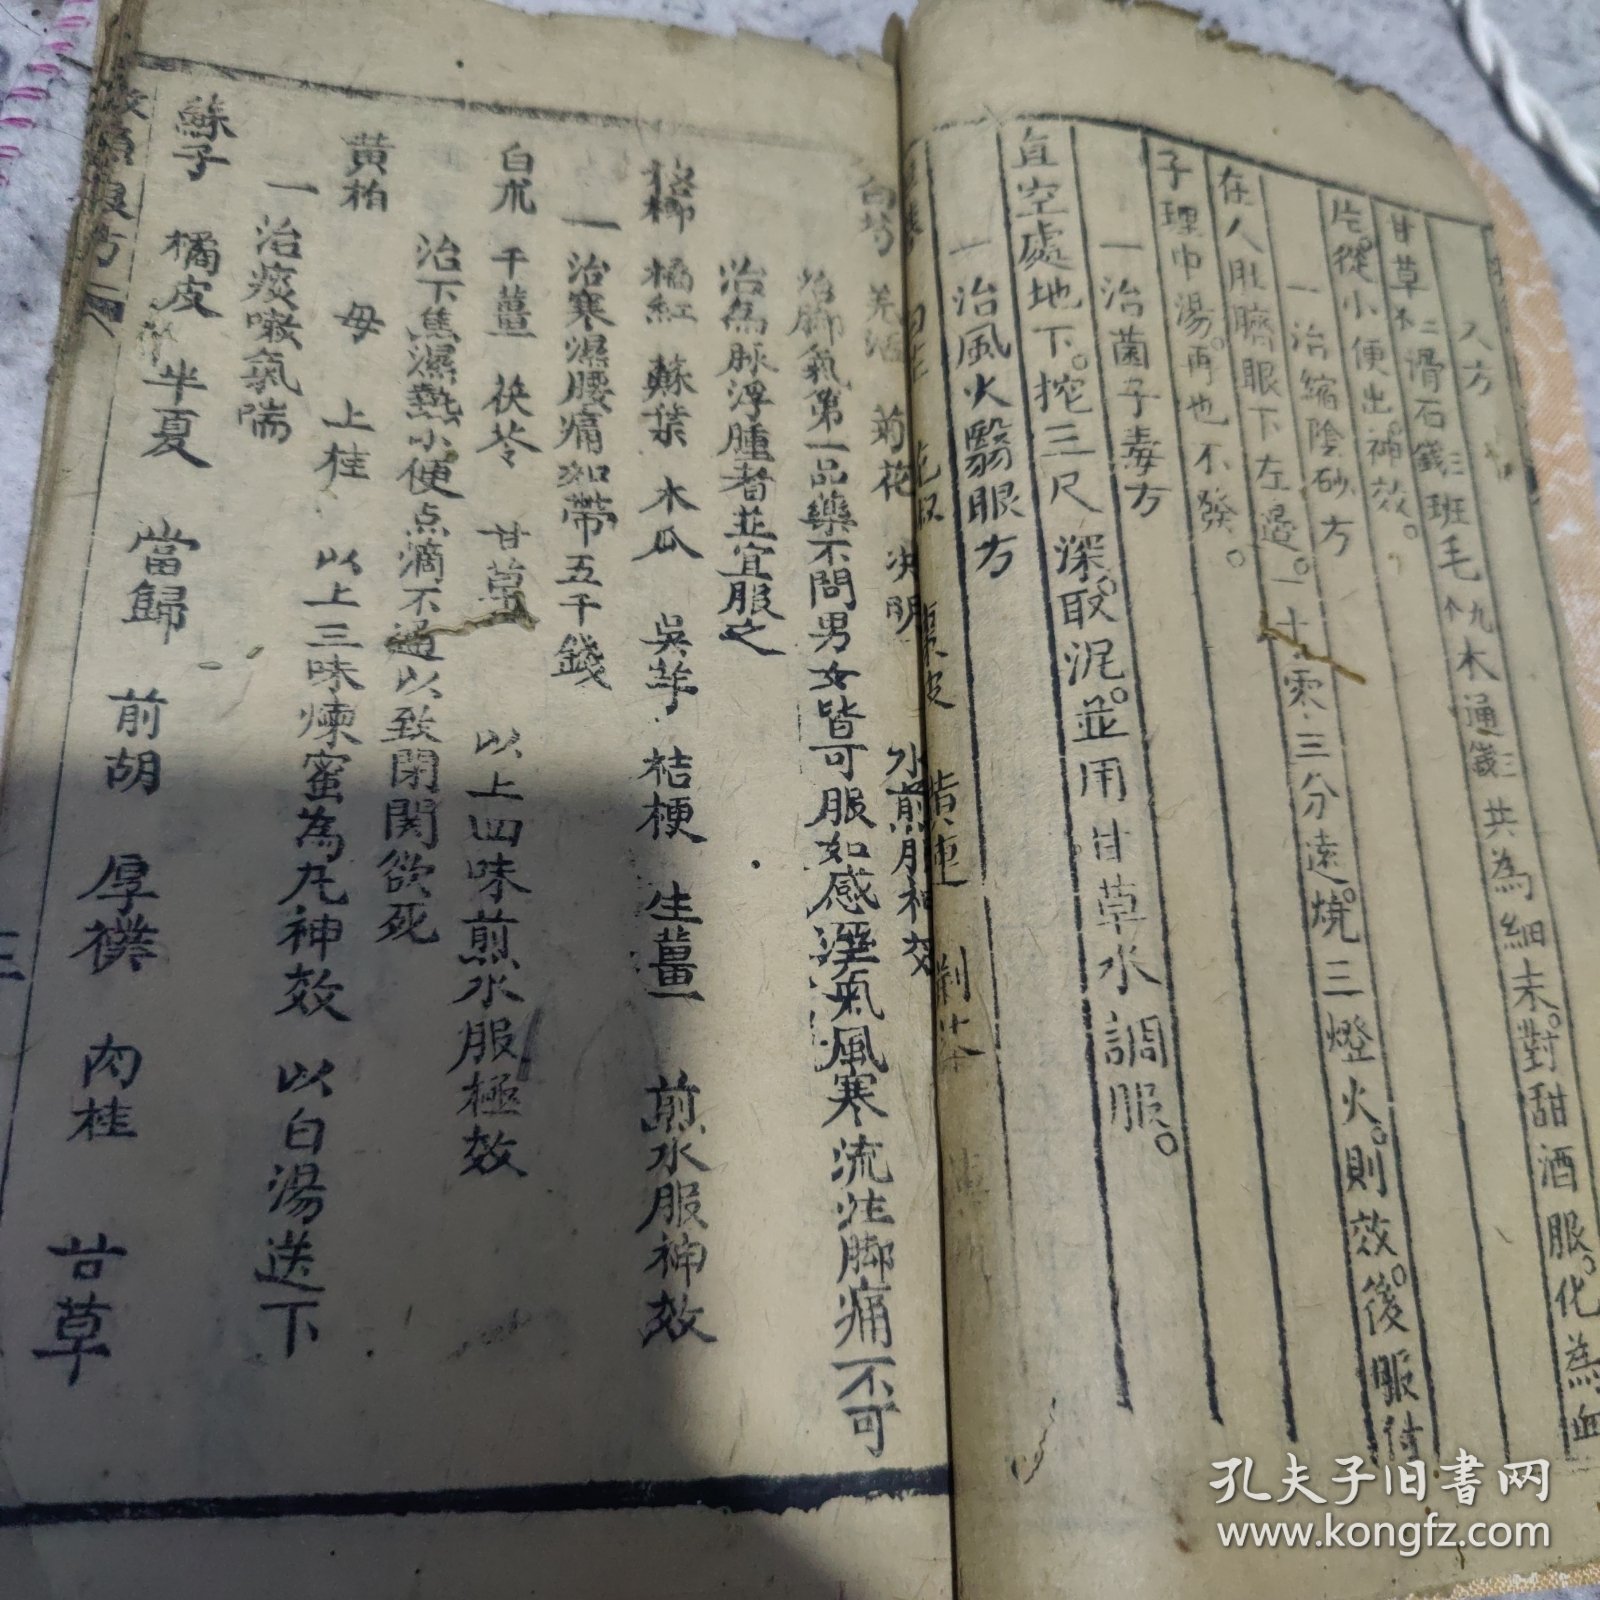 入方
甘草不二滑石錢三班毛九个木通錢三共為細末。對甜酒服。化為血
片。從小便出。神效。
一治縮陰砂方
在人肚臍眼下左邊。一寸零三分遠。燒三燈火。則效。後服付
子理中湯。再也不發。
一治菌子毒方
直空處地下。挖三尺深。取泥。並用甘草水調服。
一治風火翳眼方
白芍 羌活 菊花 決明 水煎服神效
治脚氣第一品藥不問男女皆可服如感溼氣風寒流注脚痛不可
治為脉浮腫者並宜服之
檳榔 橘紅 蘇葉 木瓜 吳芋 桔梗 生薑 煎水服神效
一治寒濕腰痛如帶五千錢
白朮 干薑 茯苓 甘草 以上四味煎水服極效
治下焦濕熱小便点滴不通以致閉関欲死
黃柏 母 上桂 以上三味煉蜜為丸神效 以白湯送下
一治痰嗽氣喘
蘇子 橘皮 半夏 當歸 前胡 厚襆 肉桂 甘草
良方
三
孔夫子旧书网
www.kongfz.com